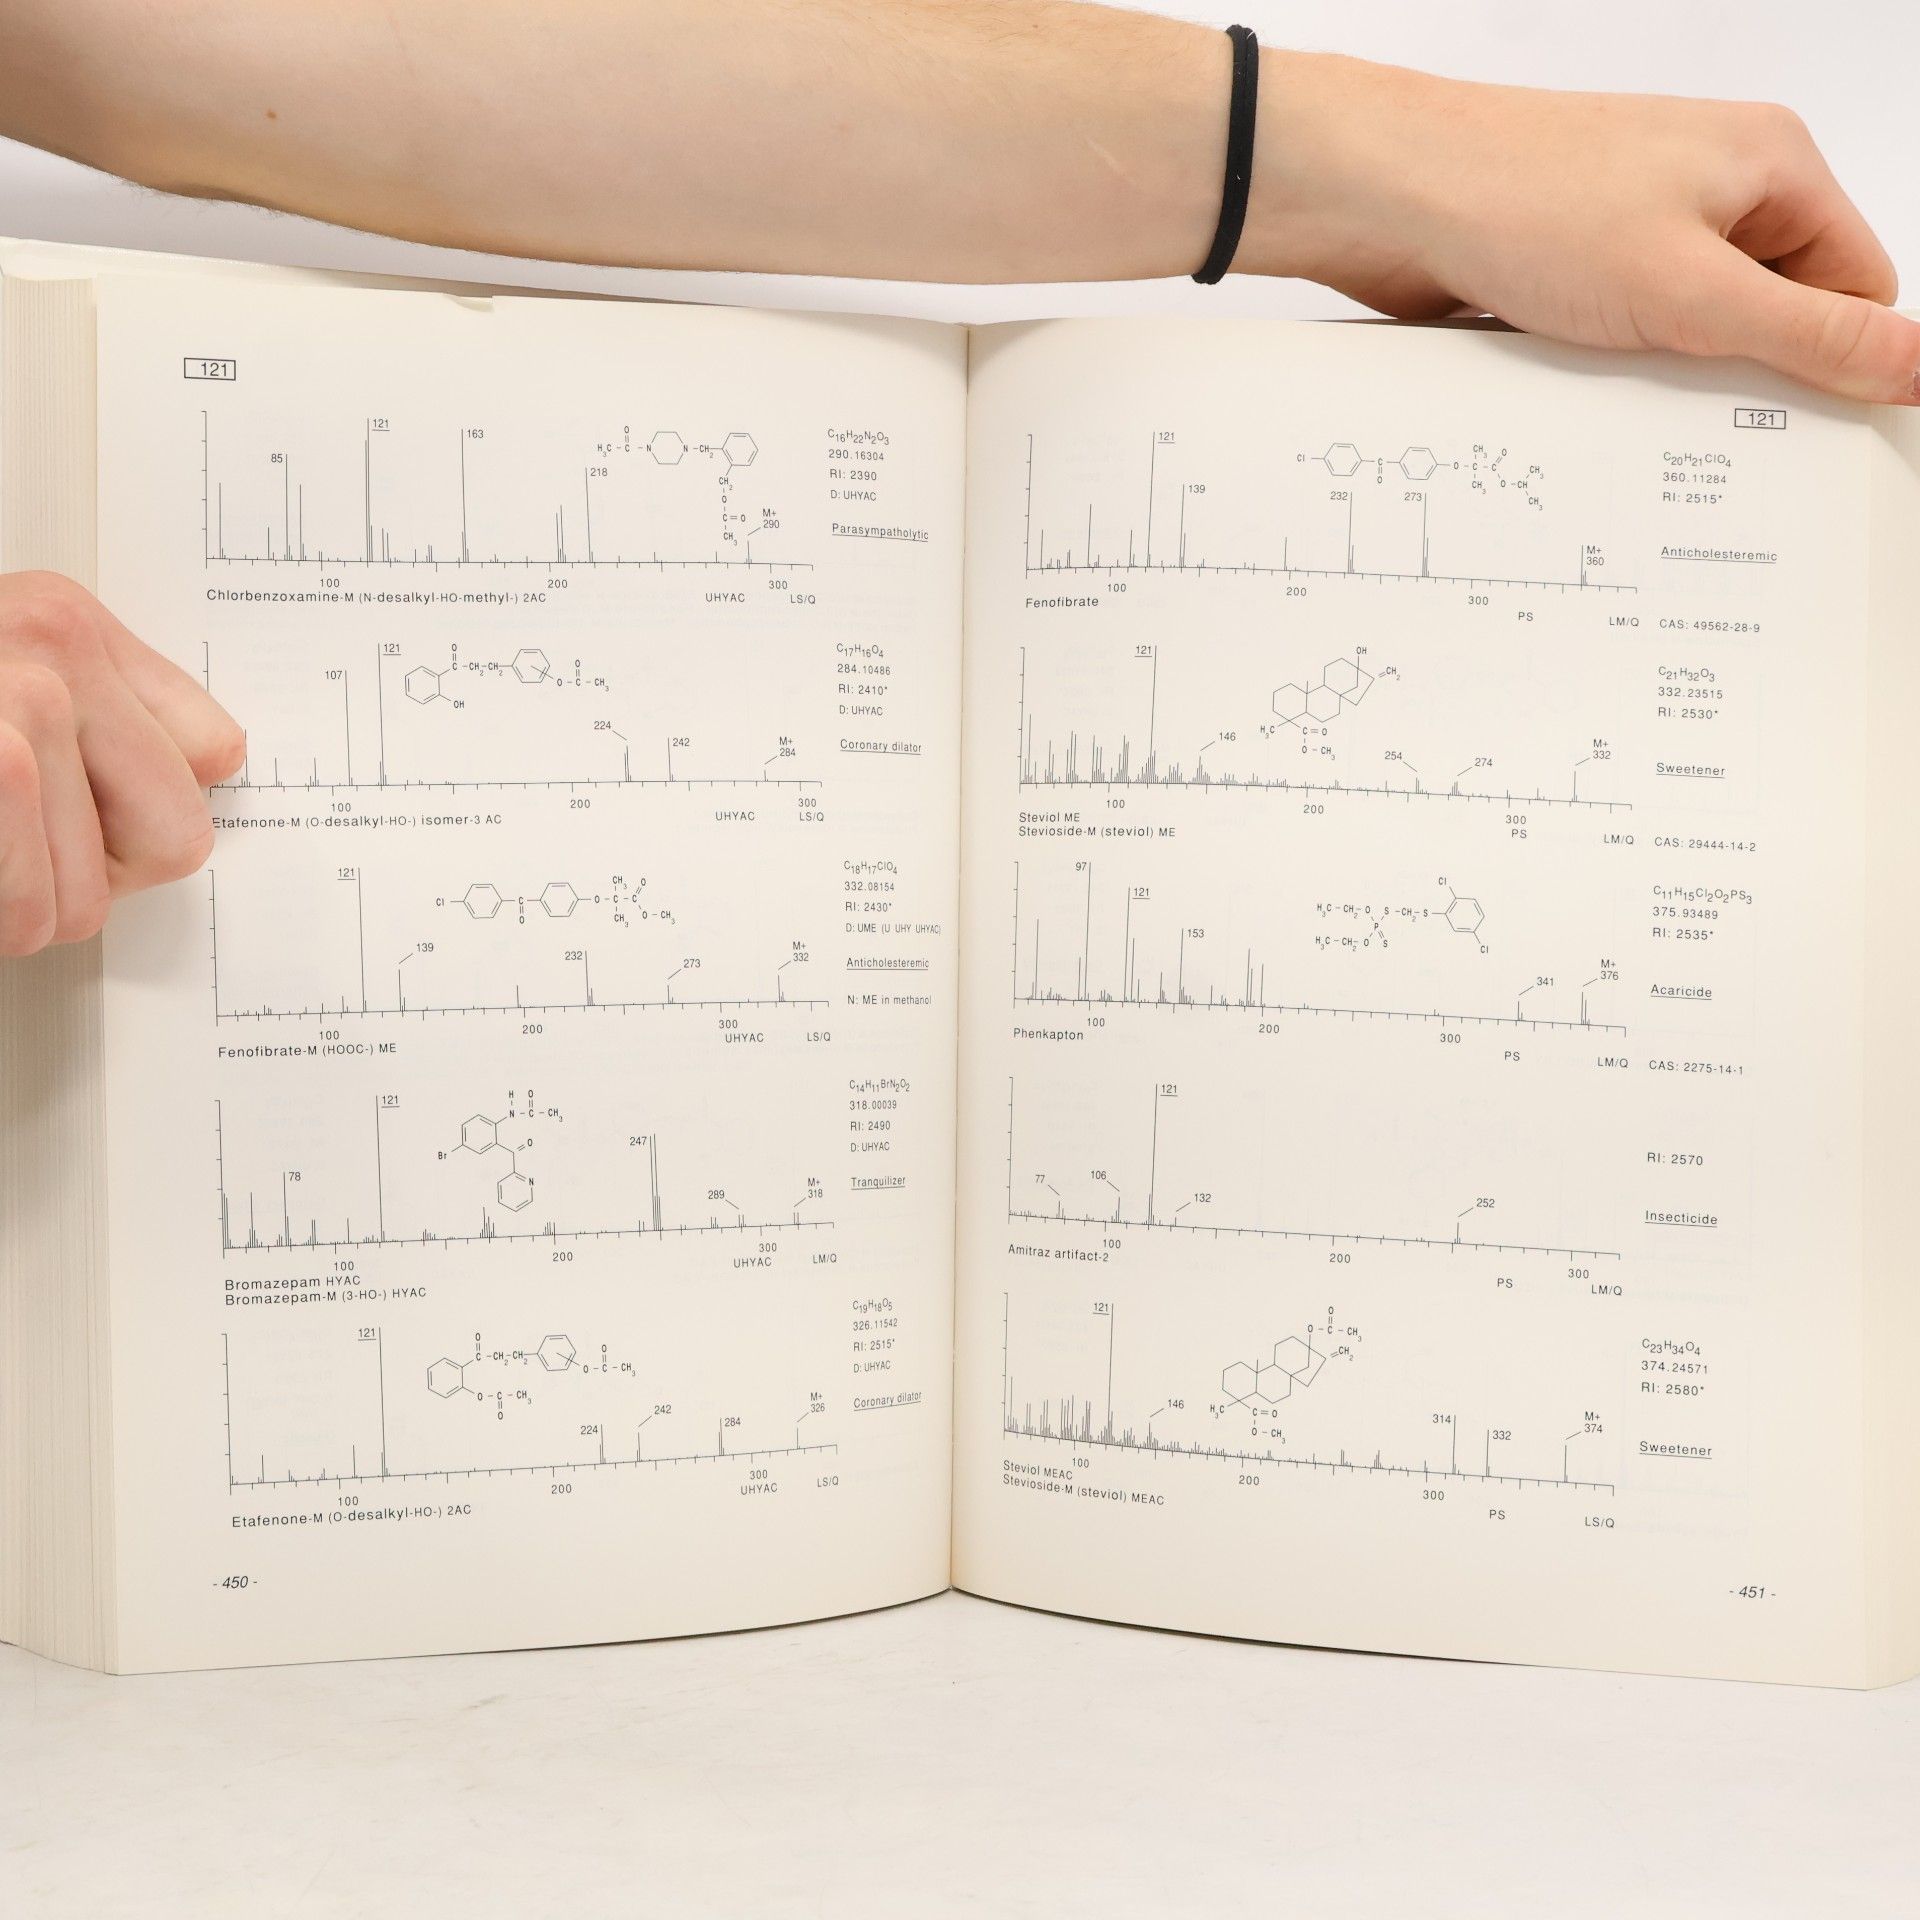 121
121
85
163
218
M+
290
C16H22N2O3
290.16304
RI: 2390
D: UHYAC
Parasympatholytic
H3C-C-N N-CH2
O
CH2
O
C=O
CH3
100
200
300
Chlorbenzoxamine-M (N-desalkyl-HO-methyl-) 2AC
UHYAC
LS/Q
107
121
224
242
M+
284
O
C-CH2-CH2
OH
O
O-C-CH3
C17H16O4
284.10486
RI: 2410*
D: UHYAC
Coronary dilator
100
200
300
Etafenone-M (O-desalkyl-HO-) isomer-3 AC
UHYAC
LS/Q
121
139
232
273
M+
332
Cl
C
O
CH3 O
O-C-C
CH3 O-CH3
C18H17ClO4
332.08154
RI: 2430*
D: UME (U UHY UHYAC)
Anticholesteremic
N: ME in methanol
100
200
300
Fenofibrate-M (HOOC-) ME
UHYAC
LS/Q
121
78
247
289
M+
318
H O
N-C-CH3
O
Br
N
C14H11BrN2O2
318.00039
RI: 2490
D: UHYAC
Tranquilizer
100
200
300
Bromazepam HYAC
Bromazepam-M (3-HO-) HYAC
UHYAC
LM/Q
121
224
242
284
M+
326
O
C-CH2-CH2
O
O-C-CH3
O-C-CH3
O
C19H18O5
326.11542
RI: 2515*
D: UHYAC
Coronary dilator
100
200
300
Etafenone-M (O-desalkyl-HO-) 2AC
UHYAC
LS/Q
- 450 -
121
121
139
232
273
M+
360
Cl
C
O
CH3 O
O-C-C
CH3 O-CH
CH3
CH3
C20H21ClO4
360.11284
RI: 2515*
Anticholesteremic
100
200
300
Fenofibrate
PS
LM/Q
CAS: 49562-28-9
121
146
254
274
M+
332
OH
CH2
H3C C=O
O-CH3
C21H32O3
332.23515
RI: 2530*
Sweetener
100
200
300
Steviol ME
Stevioside-M (steviol) ME
PS
LM/Q
CAS: 29444-14-2
97
121
153
341
M+
376
Cl
H3C-CH2-O S-CH2-S
P
H3C-CH2-O S
Cl
C11H15Cl2O2PS3
375.93489
RI: 2535*
Acaricide
100
200
300
Phenkapton
PS
LM/Q
CAS: 2275-14-1
121
77
106
132
252
RI: 2570
Insecticide
100
200
300
Amitraz artifact-2
PS
LM/Q
121
146
314
332
M+
374
O
O-C-CH3
CH2
H3C C=O
O-CH3
C23H34O4
374.24571
RI: 2580*
Sweetener
100
200
300
Steviol MEAC
Stevioside-M (steviol) MEAC
PS
LS/Q
- 451 -